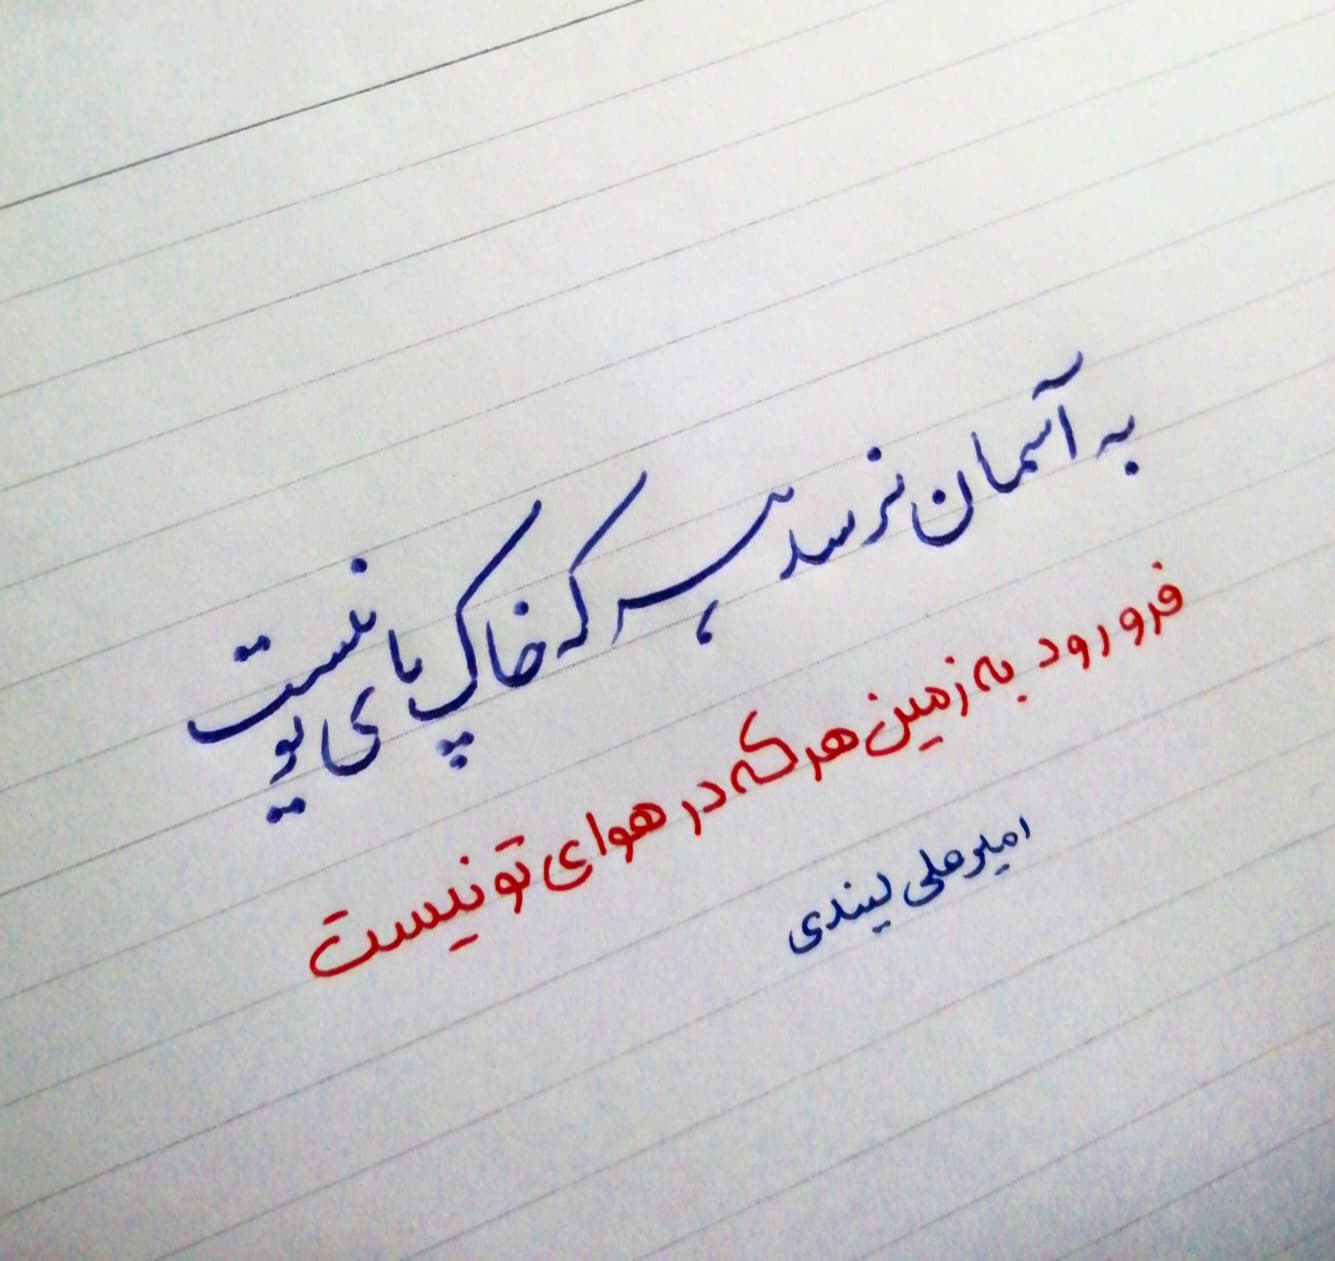 به آسمان نرسد هر که خاک پای تو نیست
فرو رود به زمین هر که در هوای تو نیست
امیرعلی لیندی